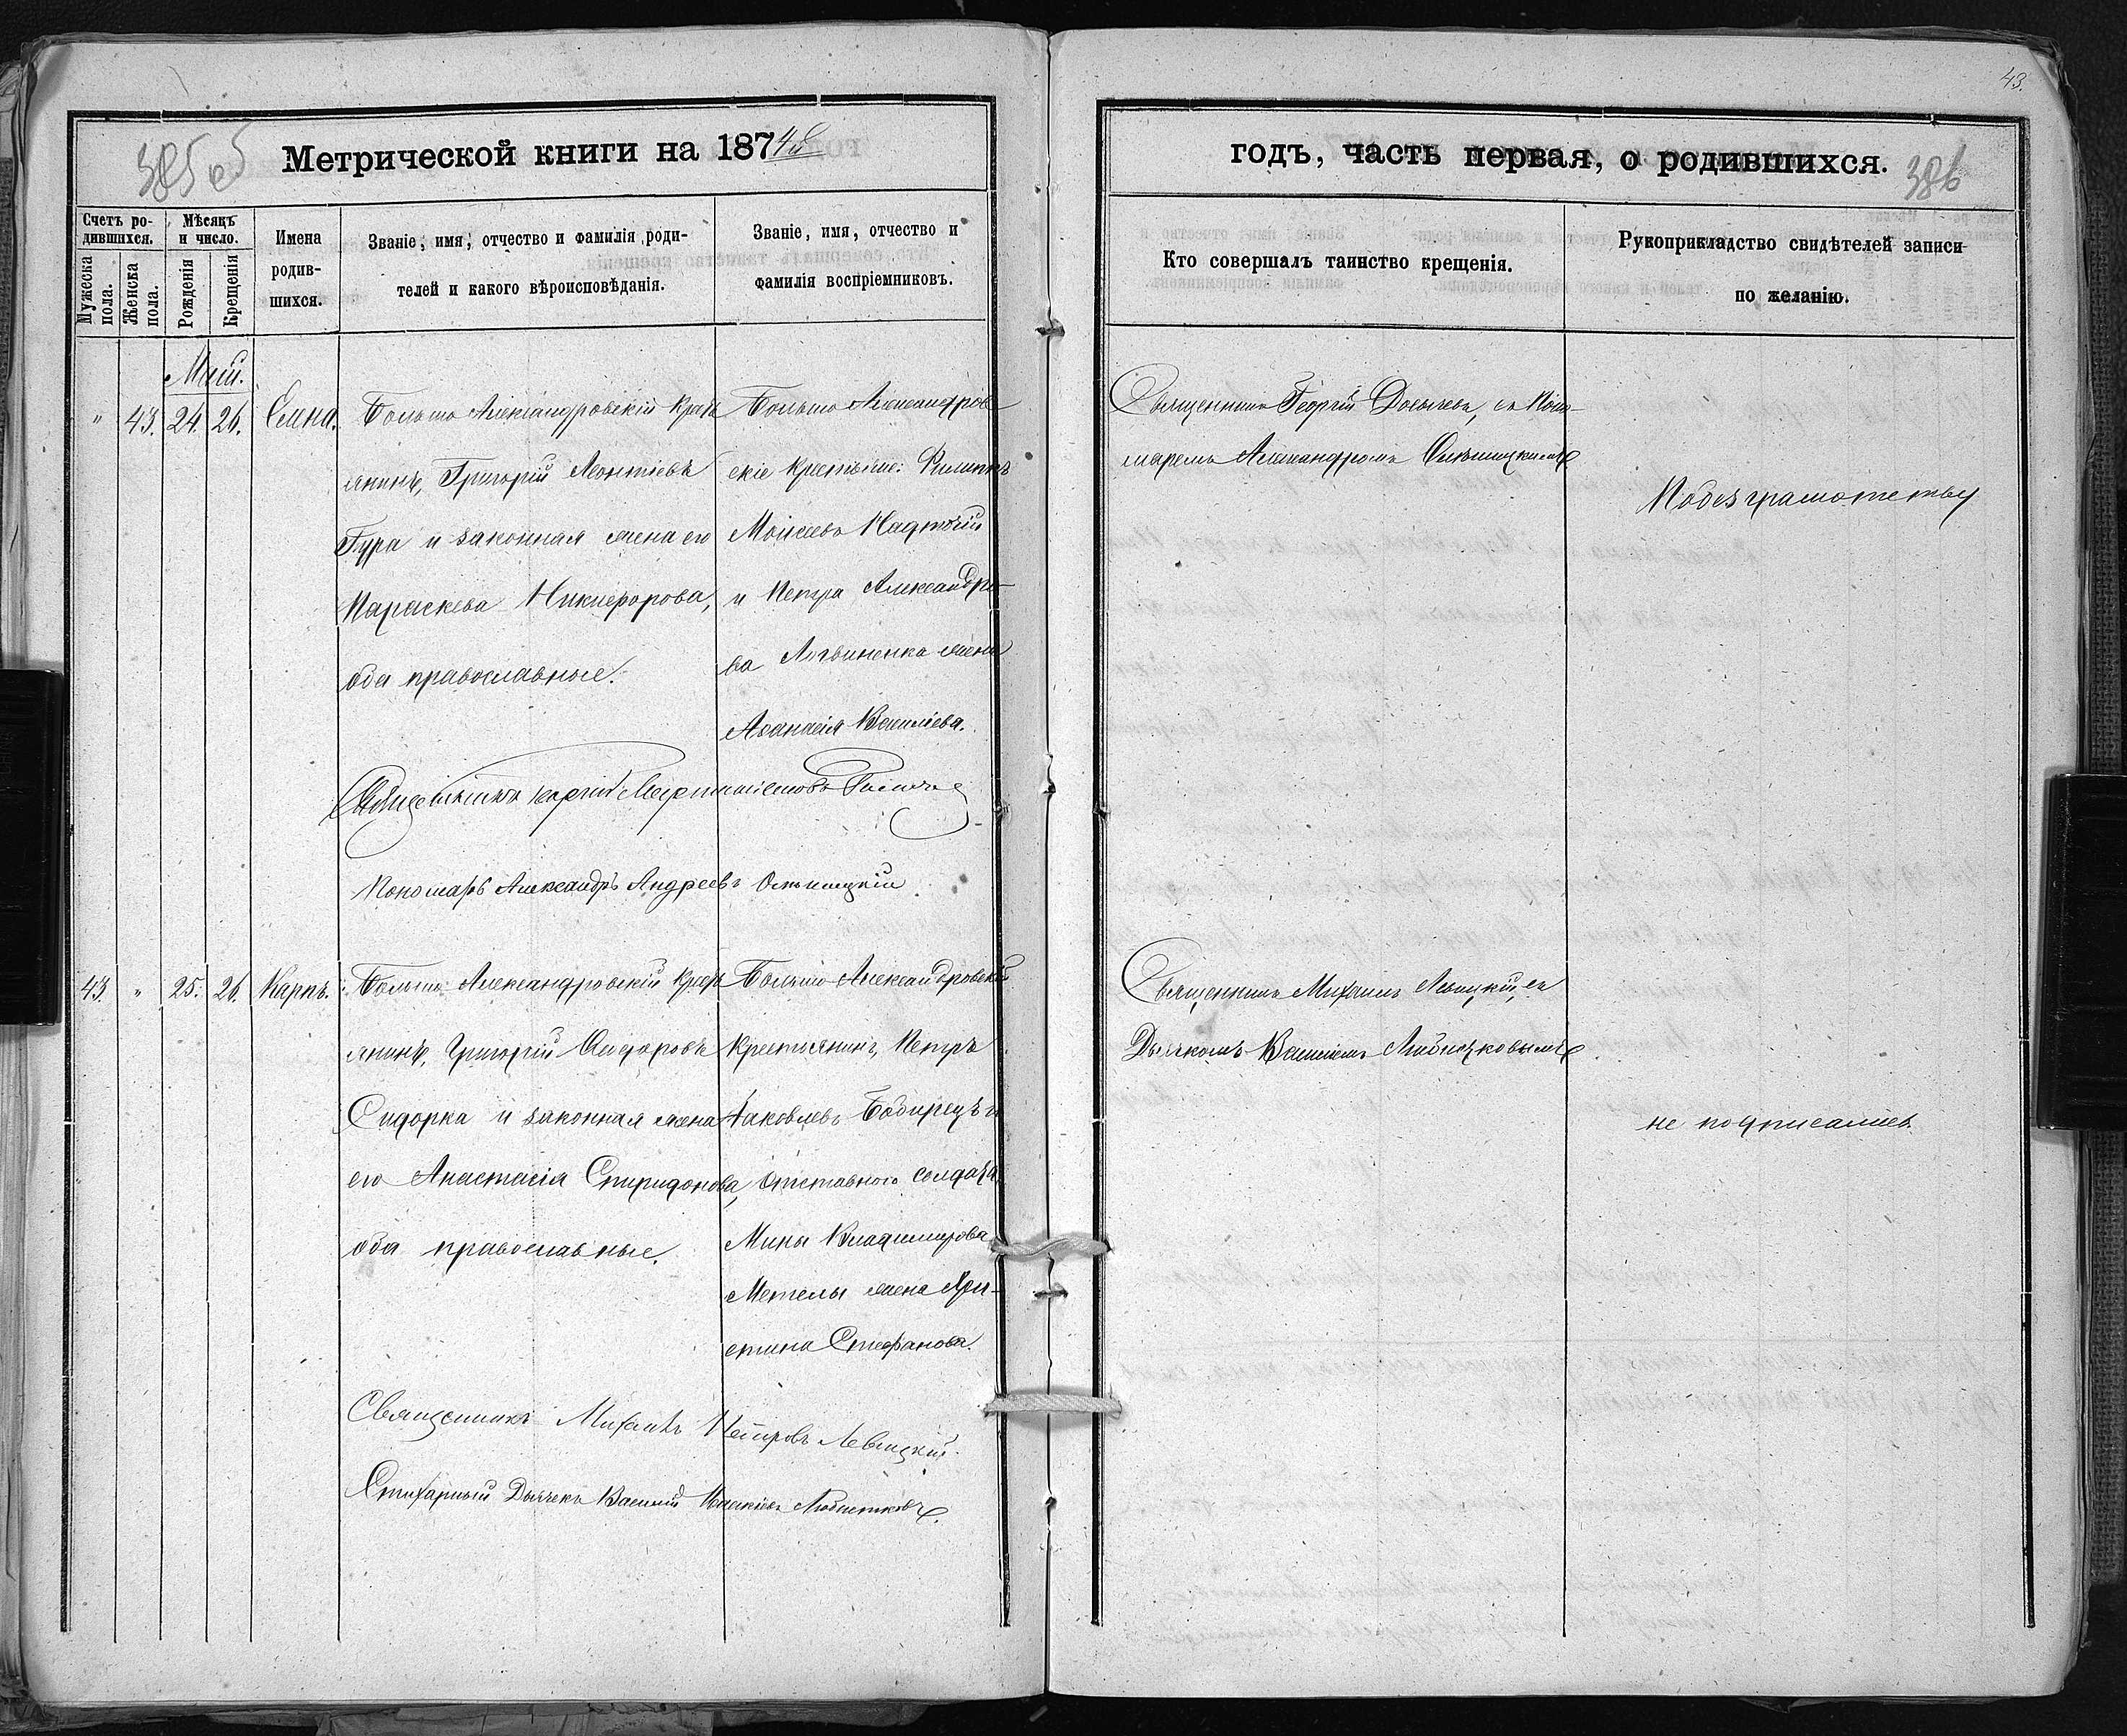 43.
385 об
Метрической книги на 1874й
годъ, часть первая, о родившихся.
386
Счетъ ро-
дившихся.
Мужеска
пола.
Женска
пола.
Мѣсяцъ
и число.
Рожденія
Крещенія
Имена
родив-
шихся.
Званіе, имя, отчество и фамилія роди-
телей и какого вѣроисповѣданія.
Званіе, имя, отчество и
фамилія воспріемниковъ.
Кто совершалъ таинство крещенія.
Рукоприкладство свидѣтелей записи
по желанію.
Май.
" 43. 24. 26. Елена.
Больше Александровскій крест
янинъ, Григорій Леонтіевъ
Гура и законная жена его
Параскева Никифорова,
оба православные.
Больше Александров
скіе крестьяне: Филиппъ
Моисеевъ Надточій
и Петра Александро-
ва Логвиненка жена
Аѳанасія Василіева.
Священникъ Георгій
Пономарь Александръ Андреевъ
Священникъ Георгій с Поно-
маремъ Александромъ
По безграмотству
43. " 25. 26. Карпъ.
Больше Александровскій крест
янинъ, Григорій Сидоровъ
Сидорка и законная жена
его Анастасія Спиридонова,
оба православные.
Больше Александровскій
крестьянинъ, Петръ
Іаковлевъ и
отставного солдата
Мины Владимирова
Метелы жена Хри-
стина Стефанова.
Священникъ Михаилъ Петровъ Левицкій.
Стихарный Дьячекъ Василій
Священникъ Михаилъ Левицкій, съ
Дьячкомъ Василіемъ
не подписались